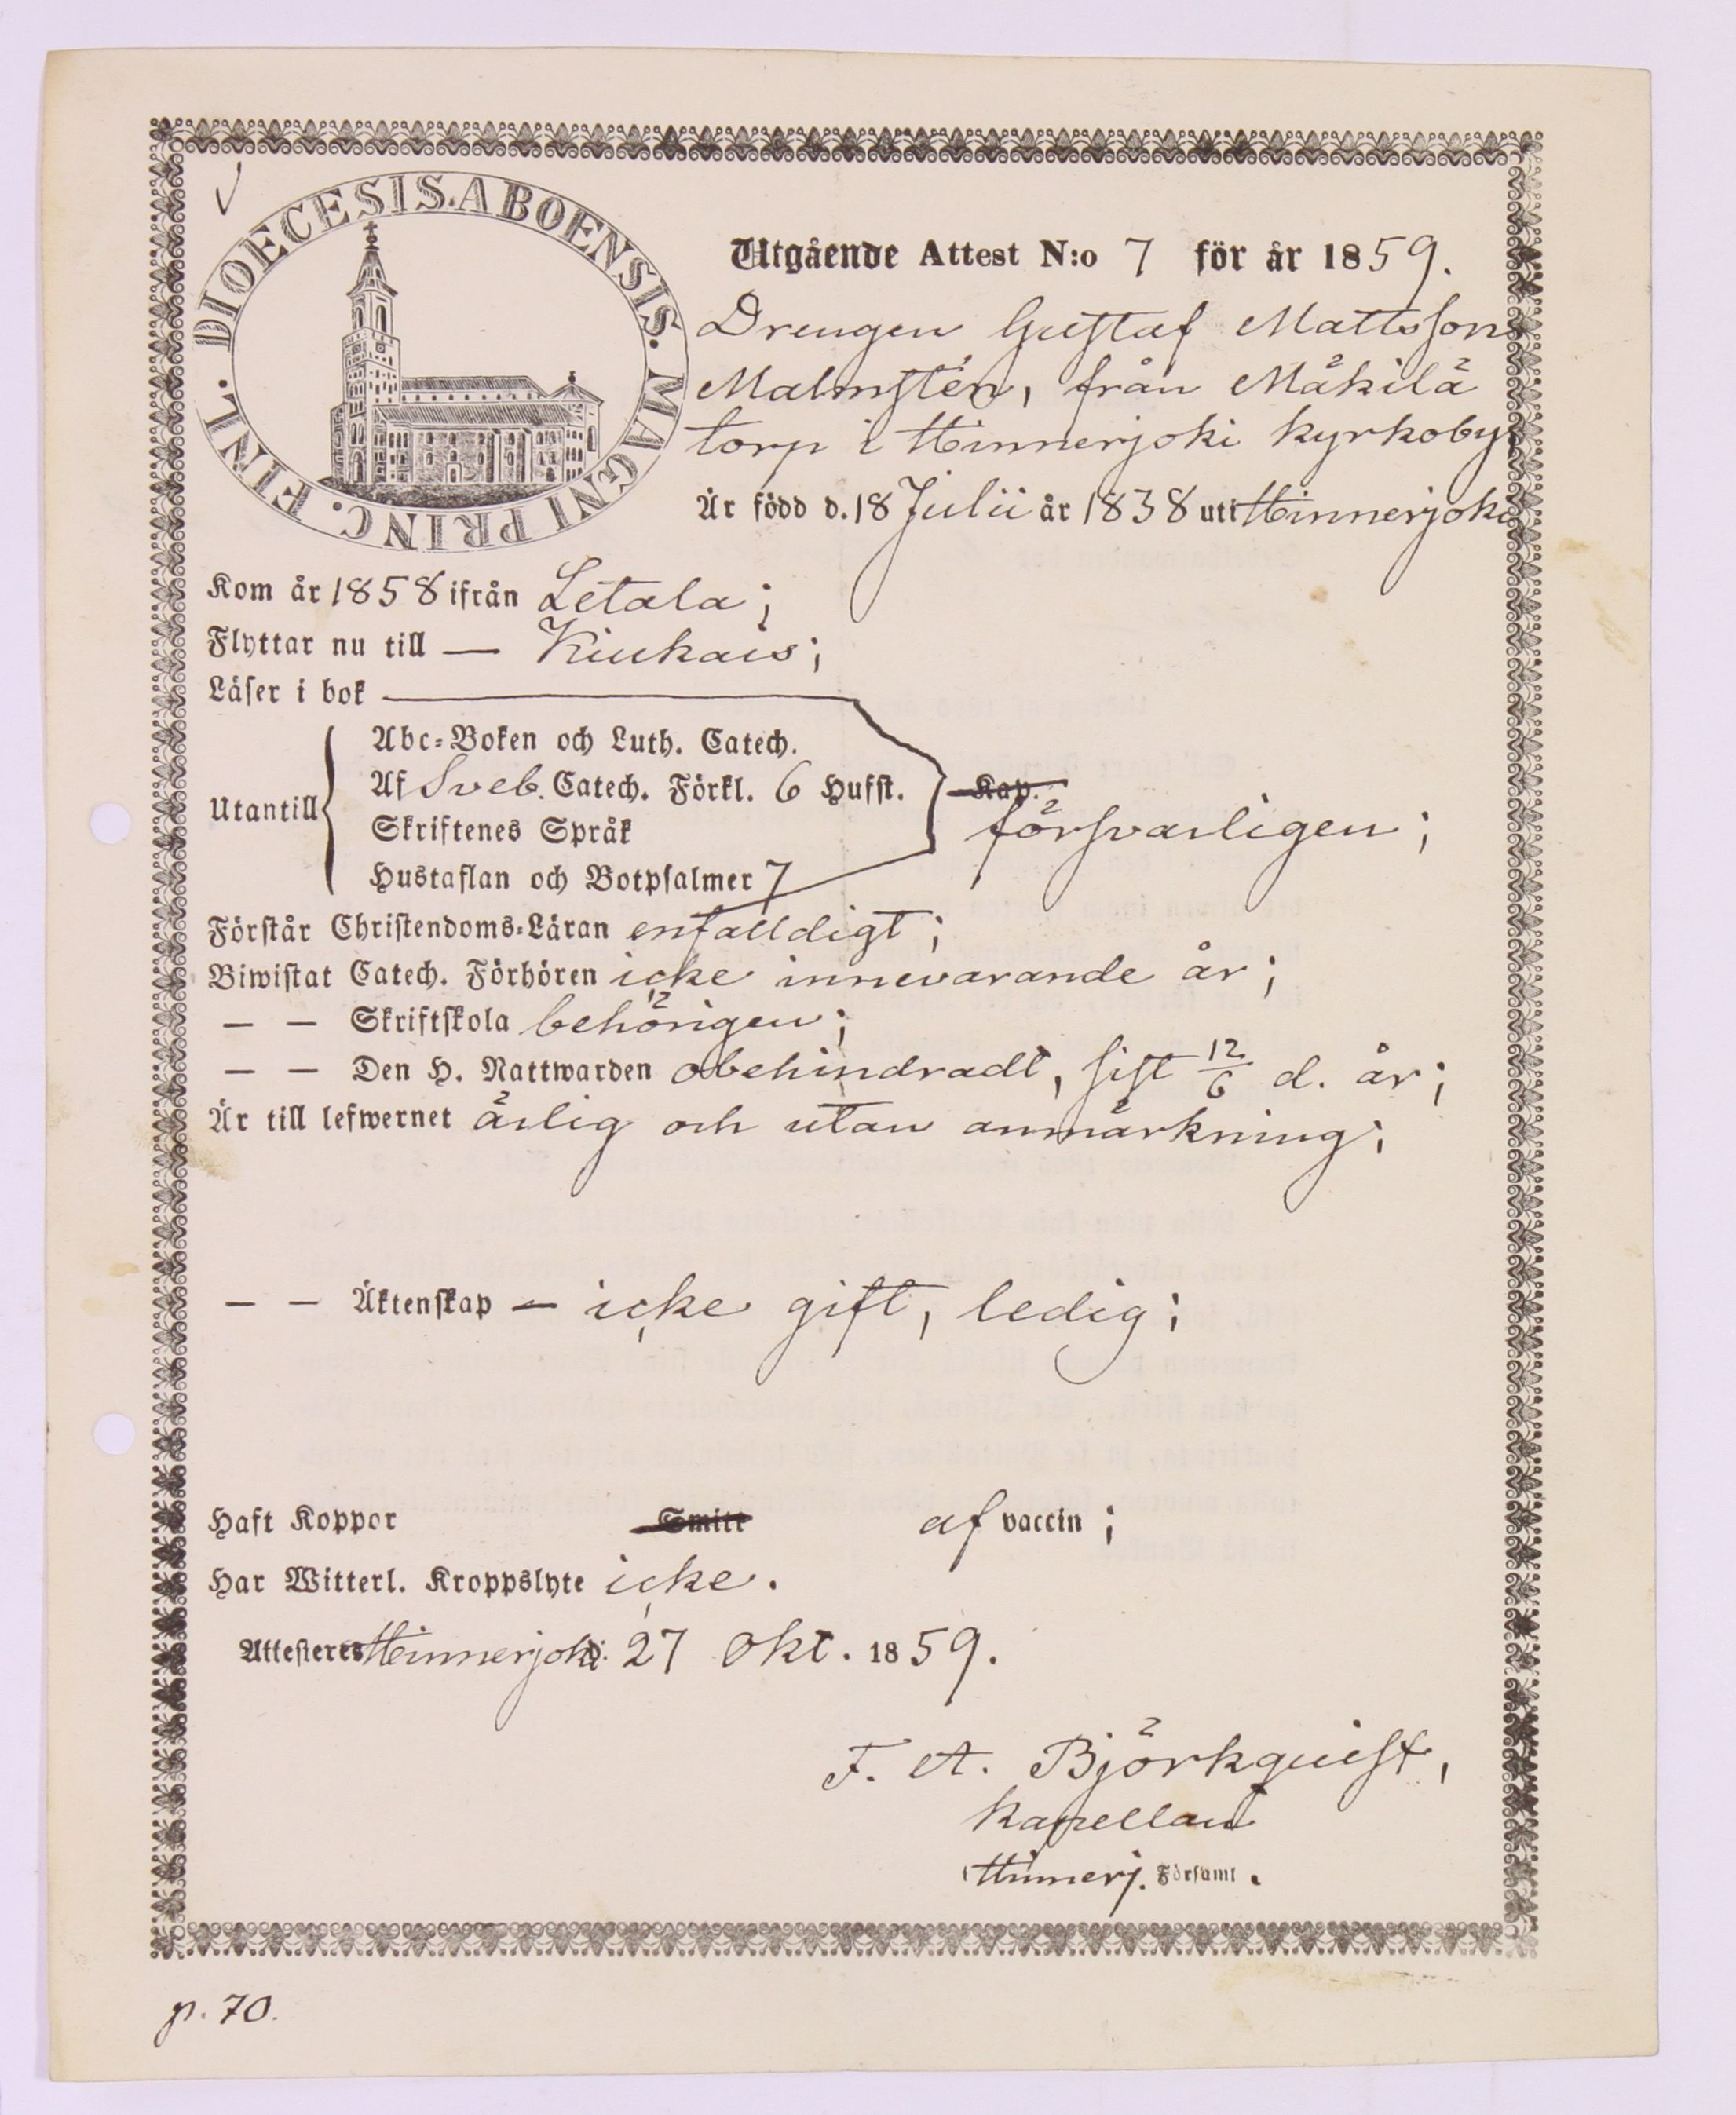 DIOECESIS. ABOENSIS. MAGNI PRINC. FINL.
Utgående Attest N:o 7 för år 1859.
Drengen Gustaf Mattsson
Malmstén, från Mäkilä
torp i Hinnerjoki kyrkoby.
Är född d. 18 Julii år 1838 uti Hinnerjoki
Kom år 1858 ifrån Letala;
Flyttar nu till — Kiukais;
Läser i bok
Utantill
Abc-Boken och Luth. Catech.
Af Sveb. Catech. Förkl. 6 Hufst. Kap.
Skriftenes Språk försvarligen;
Hustaflan och Botpsalmer 7
Förstår Christendoms-Läran enfalldigt;
Biwistat Catech. Förhören icke innevarande år;
— — Skriftskola behörigen;
— — Den H. Nattwarden obehindradt, sist 12/6 d. år;
Är till lefwernet ärlig och utan anmärkning;
— — Äktenskap — icke gift, ledig;
Haft Koppor Smitt af vaccin;
Har Witterl. Kroppslyte icke.
Attesteres Hinnerjoki 27 Okt. 1859.
F. A. Björkqvist,
Kapellan
Hinnerj. Församl.
p. 70.